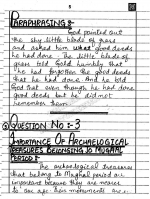 5
PARAPHRASING 8-
God pointed out
the shy little blade of grass
and asked him what good deeds
he had done. The little blade of
grass told God humbly that
he had forgotten the good deeds
that he had done. And he told
God that even though he had done
good deeds but he did not
remember them.
QUESTION No :- 3
IMPORTANCE OF ARCHAEOLOGICAL
TREASURES BELONGING TO MUGHAL
PERIOD 8-
The archaeological treasures
that belong to Mughal period are
important because they are nearer
to our age. These monuments are